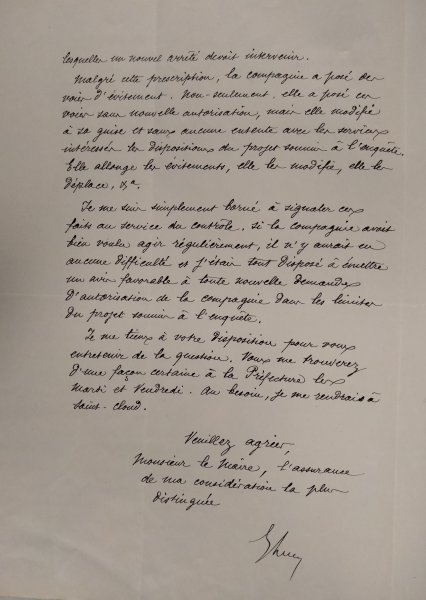 lesquelles un nouvel arrêté devait intervenir.
Malgré cette prescription, la compagnie a posé des
voies d'évitement. Non-seulement elle a posé ces
voies sans nouvelle autorisation, mais elle modifie
à sa guise et sans aucune entente avec les services
intéressés les dispositions du projet soumis à l'enquête.
Elle allonge les évitements, elle les modifie, elle les
déplace, &a.
Je me suis simplement borné à signaler ces
faits au service du contrôle. Si la compagnie avait
bien voulu agir régulièrement, il n'y aurait eu
aucune difficulté et j'étais tout disposé à émettre
un avis favorable à toute nouvelle demande
d'autorisation de la compagnie dans les limites
du projet soumis à l'enquête.
Je me tiens à votre disposition pour vous
entretenir de la question. Vous me trouverez
d'une façon certaine à la Préfecture les
Mardi et Vendredi. Au besoin, je me rendrais à
Saint-Cloud.
Veuillez agréer,
Monsieur le Maire, l'assurance
de ma considération la plus
distinguée